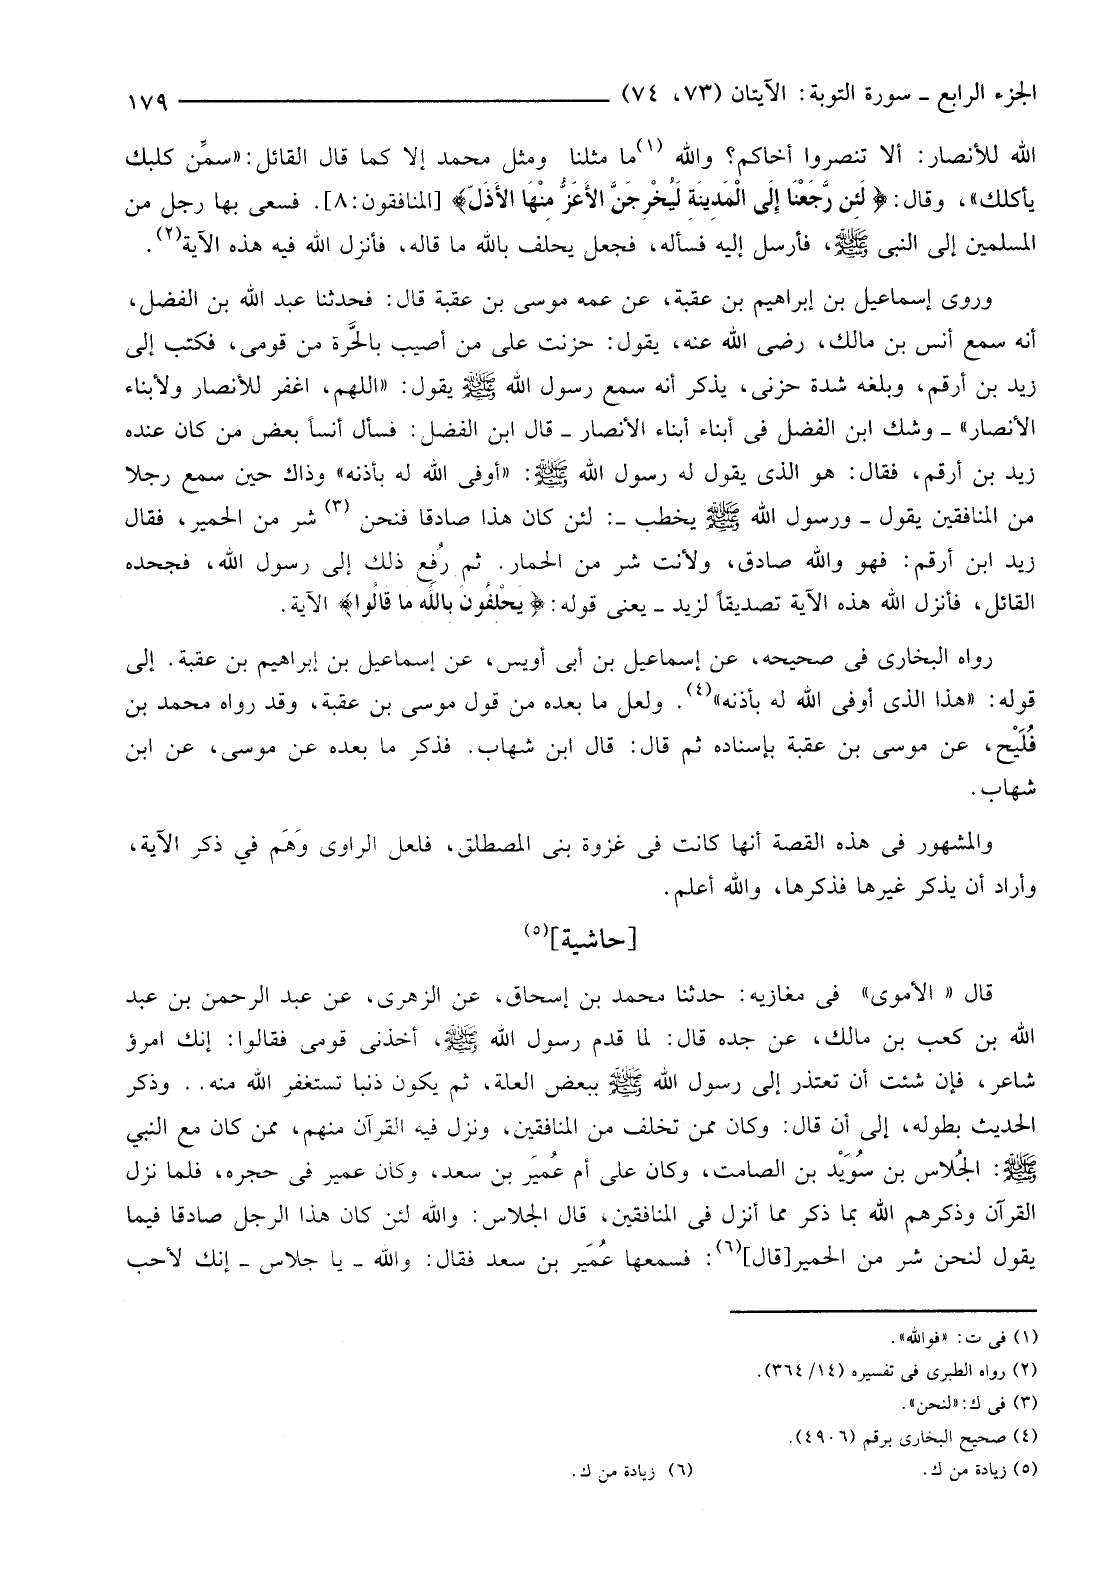 الجزء الرابع ــ سورة التوبة: الآيتان (٧٣، ٧٤) ١٧٩
الله للأنصار: ألا تنصروا أخاكم؟ والله (١)ما مثلنا ومثل محمد إلا كما قال القائل: «سمِّن كلبك
يأكلك»، وقال: ﴿ لَئِن رَّجَعْنَا إِلَى الْمَدِينَةِ لَيُخْرِجَنَّ الأَعَزُّ مِنْهَا الأَذَلّ﴾ [المنافقون:٨]. فسعى بها رجل من
المسلمين إلى النبى ﷺ، فأرسل إليه فسأله، فجعل يحلف بالله ما قاله، فأنزل الله فيه هذه الآية(٢).
وروى إسماعيل بن إبراهيم بن عقبة، عن عمه موسى بن عقبة قال: فحدثنا عبد الله بن الفضل،
أنه سمع أنس بن مالك، رضى الله عنه، يقول: حزنت على من أصيب بالحَّرة من قومى، فكتب إلى
زيد بن أرقم، وبلغه شدة حزنى، يذكر أنه سمع رسول الله ﷺ يقول: «اللهم، اغفر للأنصار ولأبناء
الأنصار» ــ وشك ابن الفضل فى أبناء أبناء الأنصار ــ قال ابن الفضل: فسأل أنساً بعض من كان عنده
زيد بن أرقم، فقال: هو الذى يقول له رسول الله ﷺ: «أوفى الله له بأذنه» وذاك حين سمع رجلا
من المنافقين يقول ــ ورسول الله ﷺ يخطب ــ: لئن كان هذا صادقا فنحن (٣) شر من الحمير، فقال
زيد ابن أرقم: فهو والله صادق، ولأنت شر من الحمار. ثم رُفع ذلك إلى رسول الله، فجحده
القائل، فأنزل الله هذه الآية تصديقاً لزيد ــ يعنى قوله: ﴿ يَحْلِفُونَ بِاللَّهِ مَا قَالُوا﴾ الآية.
رواه البخارى فى صحيحه، عن إسماعيل بن أبى أويس، عن إسماعيل بن إبراهيم بن عقبة. إلى
قوله: «هذا الذى أوفى الله له بأذنه»(٤). ولعل ما بعده من قول موسى بن عقبة، وقد رواه محمد بن
فُلَيْح، عن موسى بن عقبة بإسناده ثم قال: قال ابن شهاب. فذكر ما بعده عن موسى، عن ابن
شهاب.
والمشهور فى هذه القصة أنها كانت فى غزوة بنى المصطلق، فلعل الراوى وَهَم في ذكر الآية،
وأراد أن يذكر غيرها فذكرها، والله أعلم.
[حاشية](٥)
قال « الأموى» فى مغازيه: حدثنا محمد بن إسحاق، عن الزهرى، عن عبد الرحمن بن عبد
الله بن كعب بن مالك، عن جده قال: لما قدم رسول الله ﷺ، أخذنى قومى فقالوا: إنك امرؤ
شاعر، فإن شئت أن تعتذر إلى رسول الله ﷺ ببعض العلة، ثم يكون ذنبا تستغفر الله منه.. وذكر
الحديث بطوله، إلى أن قال: وكان ممن تخلف من المنافقين، ونزل فيه القرآن منهم، ممن كان مع النبي
ﷺ: الجُلاس بن سُوَيْد بن الصامت، وكان على أم عُميَر بن سعد، وكان عمير فى حجره، فلما نزل
القرآن وذكرهم الله بما ذكر مما أنزل فى المنافقين، قال الجلاس: والله لئن كان هذا الرجل صادقا فيما
يقول لنحن شر من الحمير[قال](٦): فسمعها عُمَير بن سعد فقال: والله ــ يا جلاس ــ إنك لأحب
(١) فى ت: «فوالله».
(٢) رواه الطبرى فى تفسيره (١٤/ ٣٦٤).
(٣) فى ك: «لنحن».
(٤) صحيح البخارى برقم (٤٩٠٦).
(٥) زيادة من ك. (٦) زيادة من ك.